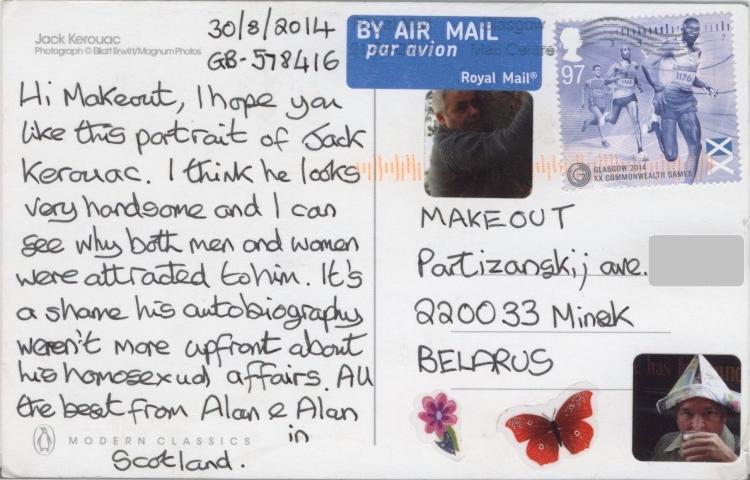 Jack Kerouac
Photograph © Elliott Erwitt/Magnum Photos
30/8/2014
GB-578416
Hi Makeout, I hope you
like this portrait of Jack
Kerouac. I think he looks
very handsome and I can
see why both men and women
were attracted to him. It's
a shame his autobiography
weren't more upfront about
his homosexual affairs. All
the best from Alan & Alan
in
Scotland.
MODERN CLASSICS
BY AIR MAIL
par avion
Royal Mail®
Glasgow
Mail Centre
97
1176
GLASGOW 2014
XX COMMONWEALTH GAMES
MAKEOUT
Partizanskij ave.
220033 Minsk
BELARUS